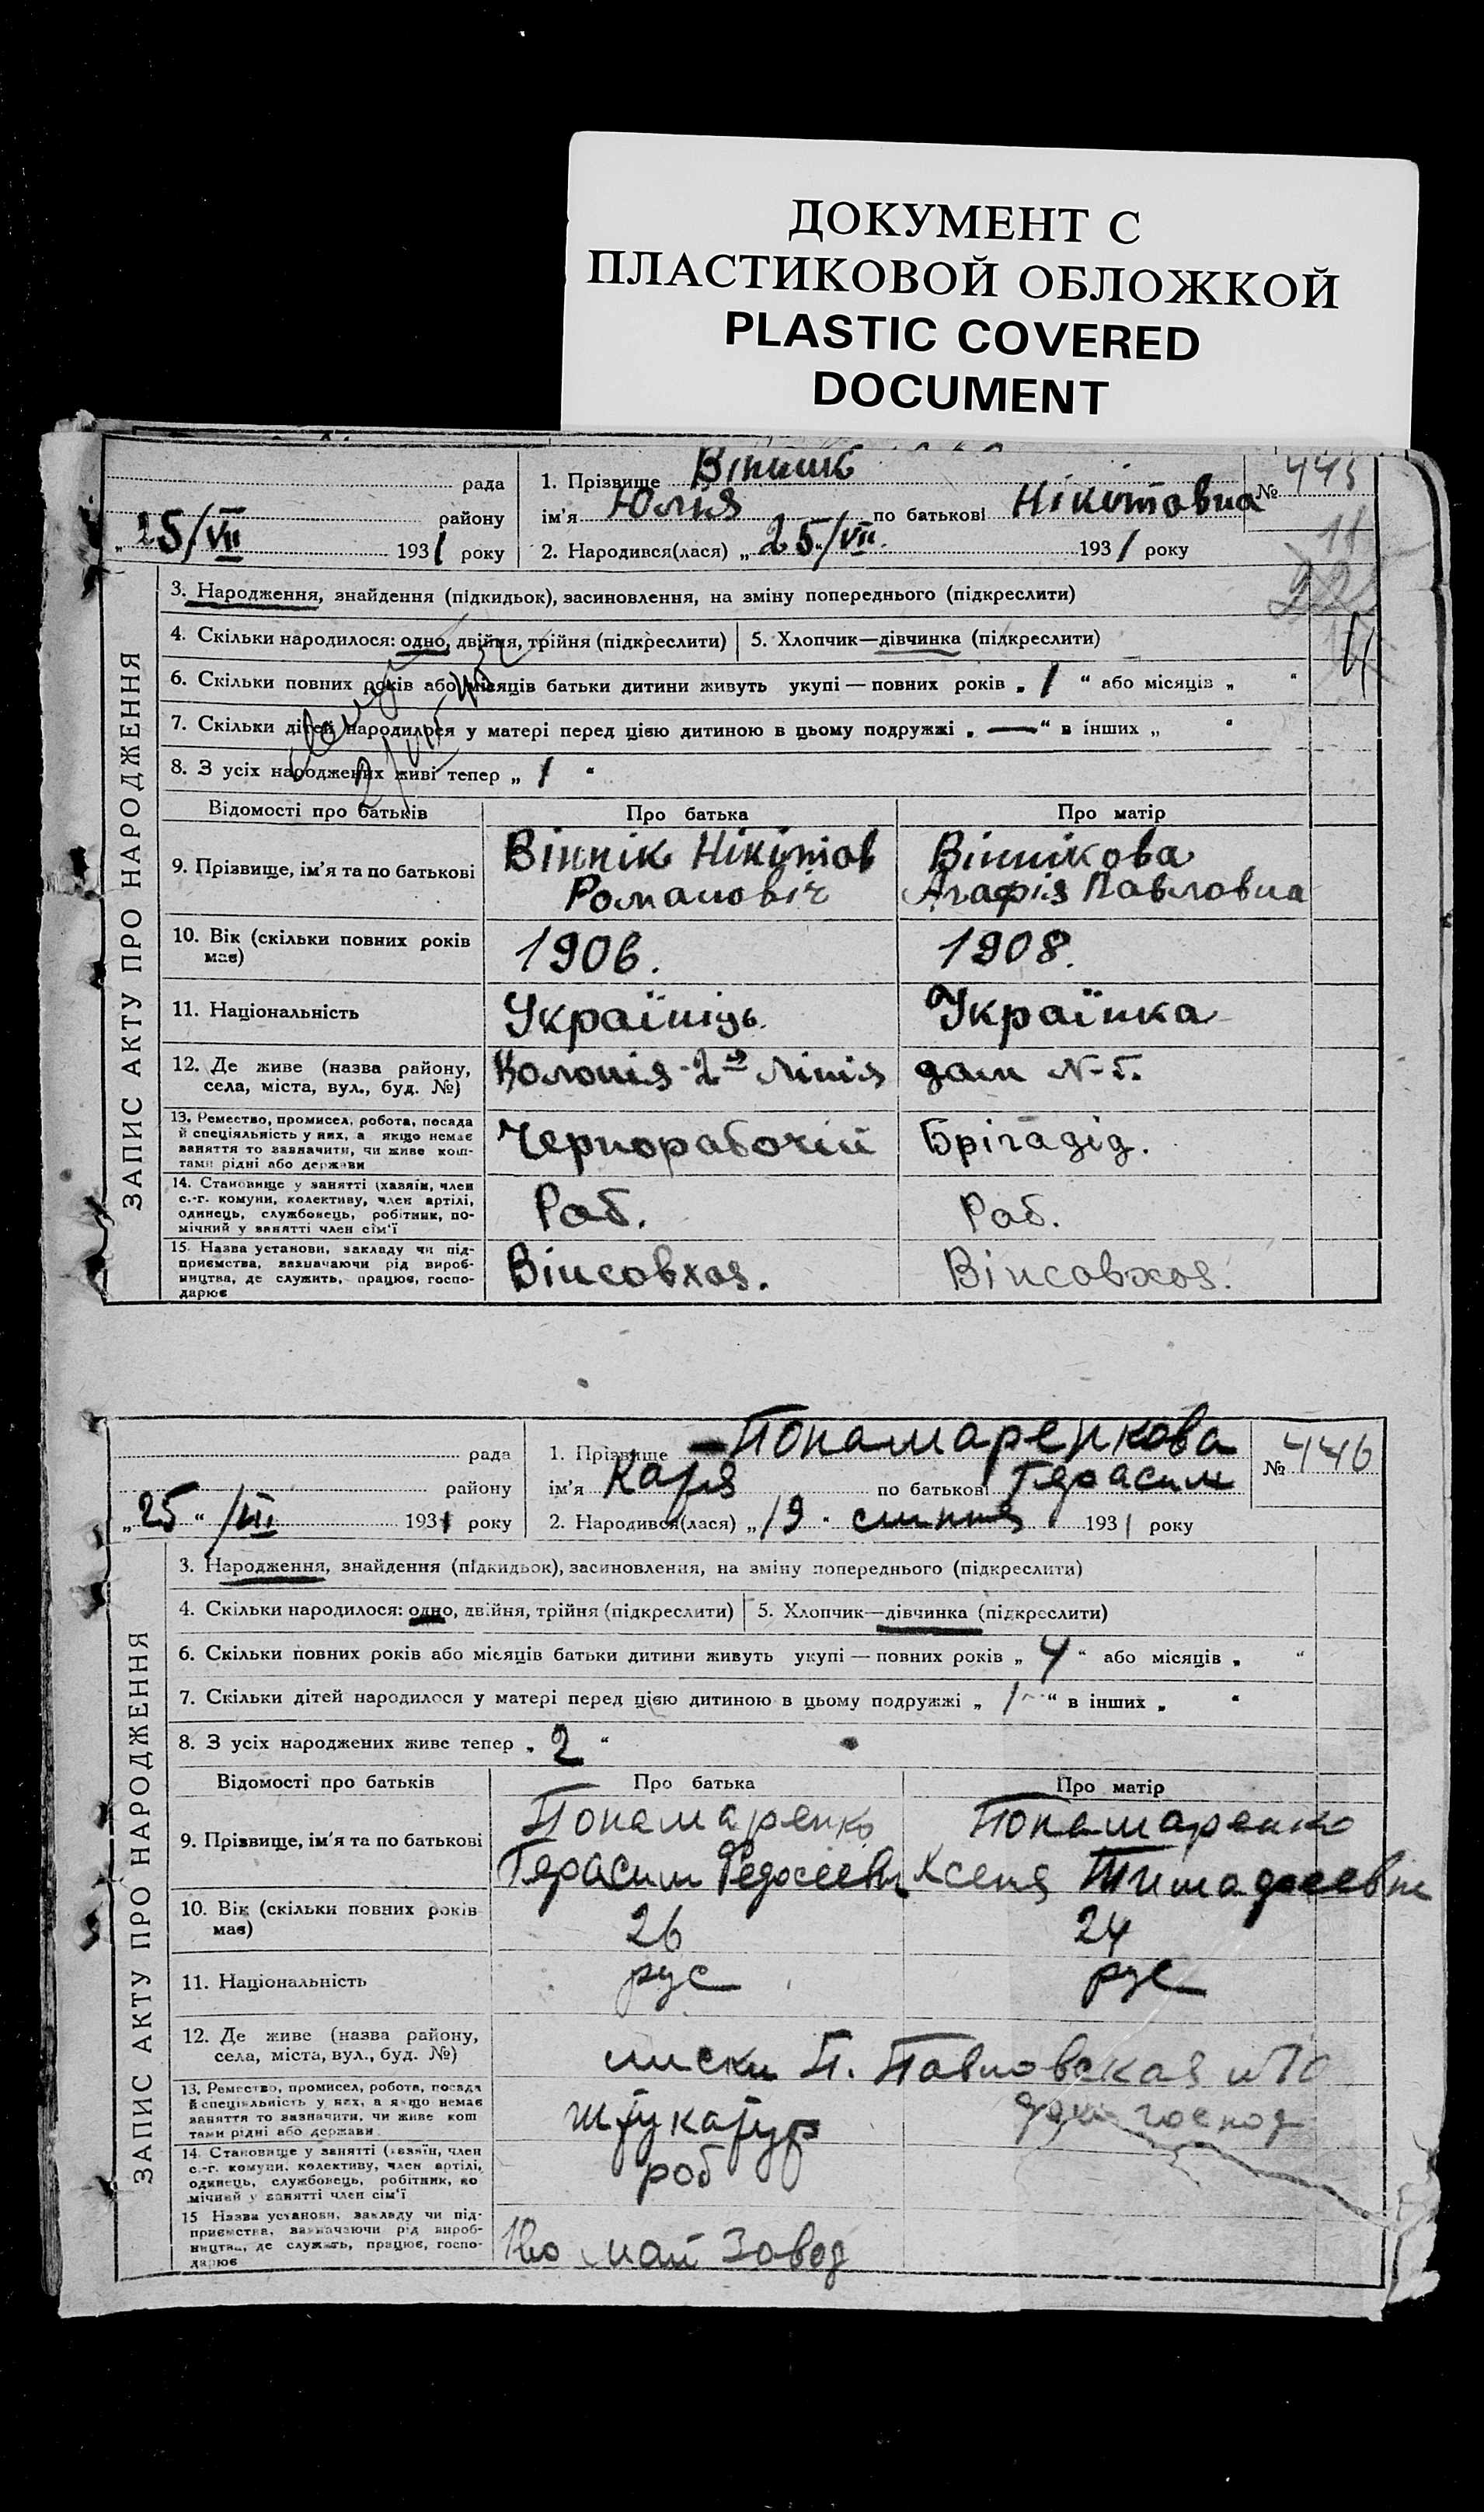 ДОКУМЕНТ С
ПЛАСТИКОВОЙ ОБЛОЖКОЙ
PLASTIC COVERED
DOCUMENT
рада
району
25/VII 1931 року
1. Прізвище Віннік
ім'я Юлия по батькові Нікітовна
2. Народився(лася) „25/VII 1931 року
№ 445
11
ЗАПИС АКТУ ПРО НАРОДЖЕННЯ
3. Народження, знайдення (підкидьок), засиновлення, на зміну попереднього (підкреслити)
4. Скільки народилося: одно, двійня, трійня (підкреслити) 5. Хлопчик—дівчинка (підкреслити)
6. Скільки повних років або місяців батьки дитини живуть укупі — повних років „ 1 “ або місяців „ “
7. Скільки дітей народилося у матері перед цією дитиною в цьому подружжі „ — “ в інших „ “
8. З усіх народжених живі тепер „ 1 “
Відомості про батьків Про батька Про матір
9. Прізвище, ім'я та по батькові Віннік Нікітов Віннікова
Романовіч Агафія Павловна
10. Вік (скільки повних років 1906. 1908.
має)
11. Національність Українiць. Українка
12. Де живе (назва району, Колонія - 2 ая Лінія дом N-5.
села, міста, вул., буд. №)
13. Ремество, промисел, робота, посада Чернорабочій Брігадід.
й спеціяльність у них, а якщо немає
заняття то зазначити, чи живе кош-
тами рідні або держави
14. Становище у занятті (хазяїн, член Раб. Раб.
с.-г. комуни, колективу, член артілі,
одинець, службовець, робітник, по-
мічний у занятті член сім'ї
15. Назва установи, закладу чи під- Вінсовхоз. Вінсовхоз.
приємства, зазначаючи рід вироб-
ництва, де служить, працює, госпо-
дарює
рада
району
„25“ /VII 1931 року
1. Прізвище Понамаренкова
ім'я Каря по батькові Герасим
2. Народився(лася) „19. 1931 року
№ 446
ЗАПИС АКТУ ПРО НАРОДЖЕННЯ
3. Народження, знайдення (підкидьок), засиновлення, на зміну попереднього (підкреслити)
4. Скільки народилося: одно, двійня, трійня (підкреслити) 5. Хлопчик—дівчинка (підкреслити)
6. Скільки повних років або місяців батьки дитини живуть укупі — повних років „ 4 “ або місяців „ “
7. Скільки дітей народилося у матері перед цією дитиною в цьому подружжі „ 1 “ в інших „ “
8. З усіх народжених живе тепер „ 2 “
Відомості про батьків Про батька Про матір
9. Прізвище, ім'я та по батькові Понамаренко Понамаренко
Герасим Федосеевич Ксеня Тимофеевне
10. Вік (скільки повних років 26 24
має)
11. Національність рус рус
12. Де живе (назва району, П. Павловская
села, міста, вул., буд. №)
13. Ремество, промисел, робота, посада штукатур господ
й спеціяльність у них, а якщо немає
заняття то зазначити, чи живе кош
тами рідні або держави
14. Становище у занятті (хазяїн, член роб
с.-г. комуни, колективу, член артілі,
одинець, службовець, робітник, по
мічний у занятті член сім'ї
15 Назва установи, закладу чи під- 1го май Завод
приємства, зазначаючи рід вироб-
ництва, де служить, працює, госпо-
дарює